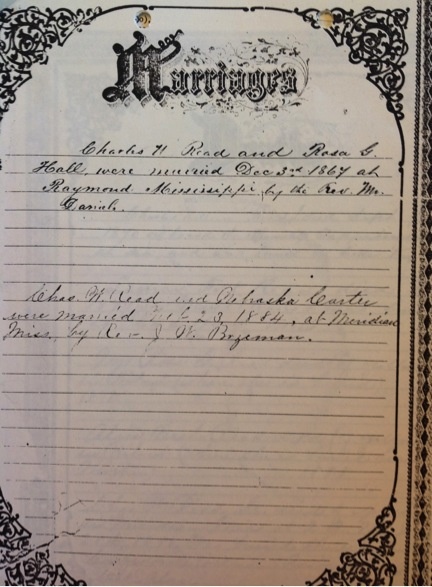 Marriages
Charles W Read and Rosa G.
Hall, were married Dec 3rd 1867 at
Raymond Mississippi, by the Rev. Mr.
Chas. W. Read and Nebraska Carter
were married Feb. 23, 1884, at Meridian
Miss, by Rev. J W. Bozeman.